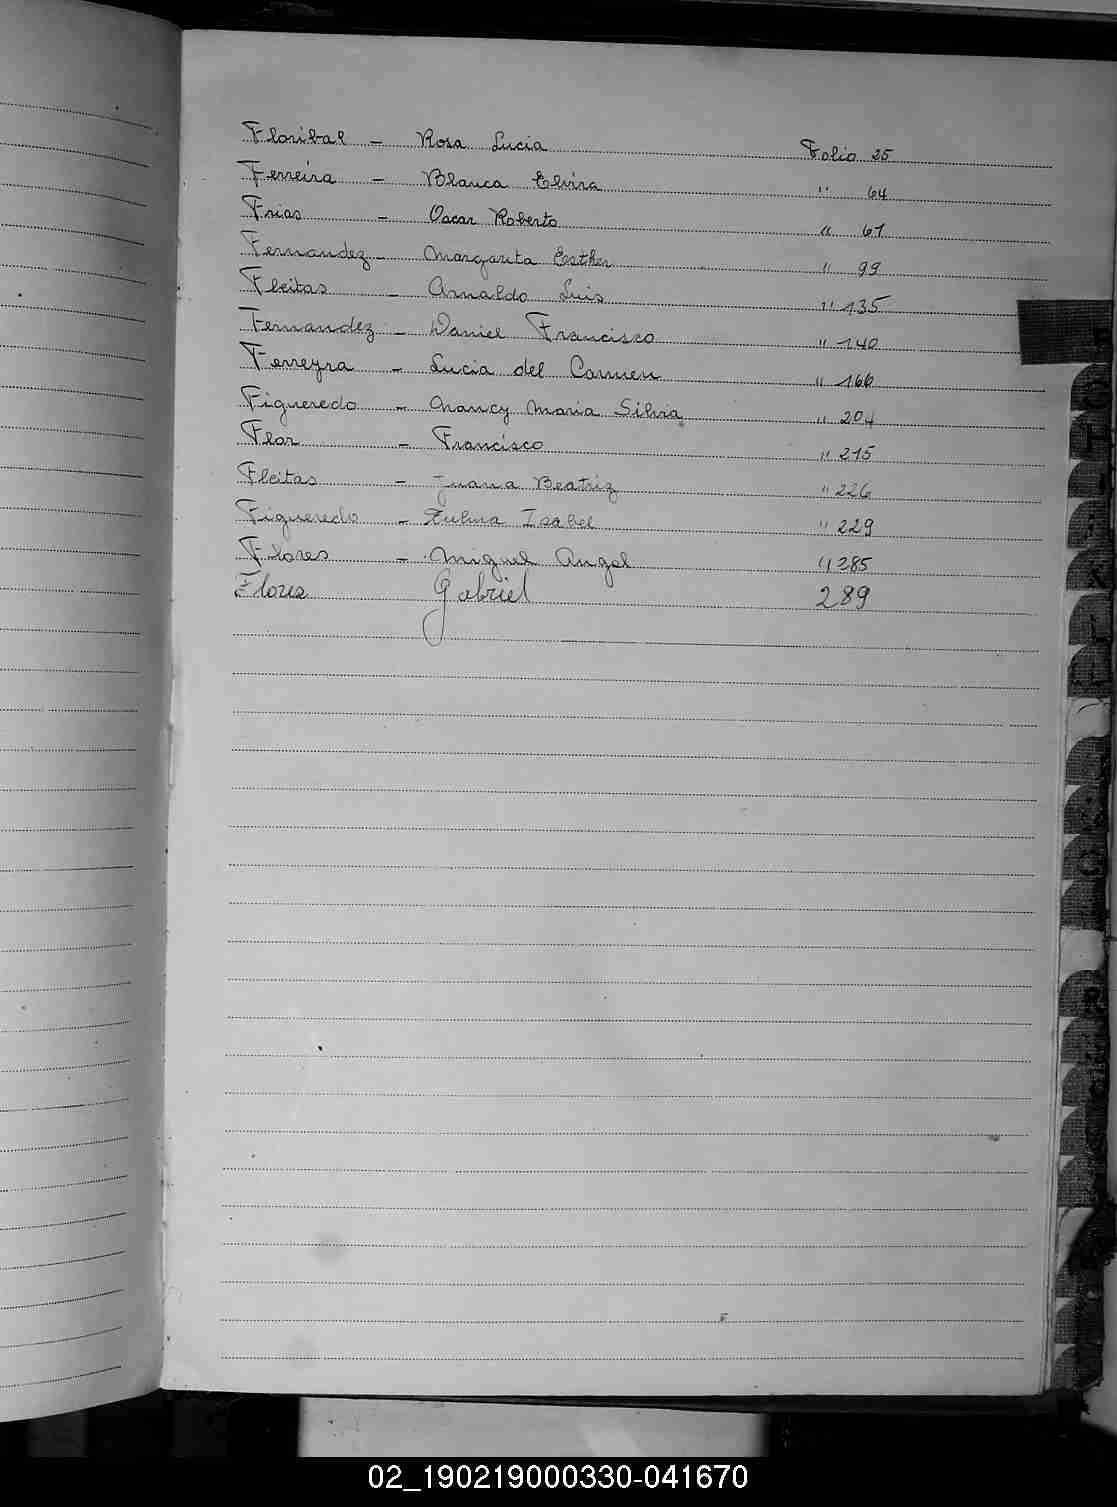 Floribal - Rosa Lucia Folio 25
Ferreira - Blanca Elvira " 64
Frias - Oscar Roberto " 67
Fernandez - Margarita Esther " 99
Fleitas - Arnaldo Luis " 135
Fernandez - Daniel Francisco " 140
Ferreyra - Lucia del Carmen " 166
Figueredo - Nancy Maria Silvia " 204
Flor - Francisco " 215
Fleitas - Juana Beatriz " 226
Figueredo - Zulma Isabel " 229
Flores - Miguel Angel " 285
Flores Gabriel 289
02_190219000330-041670